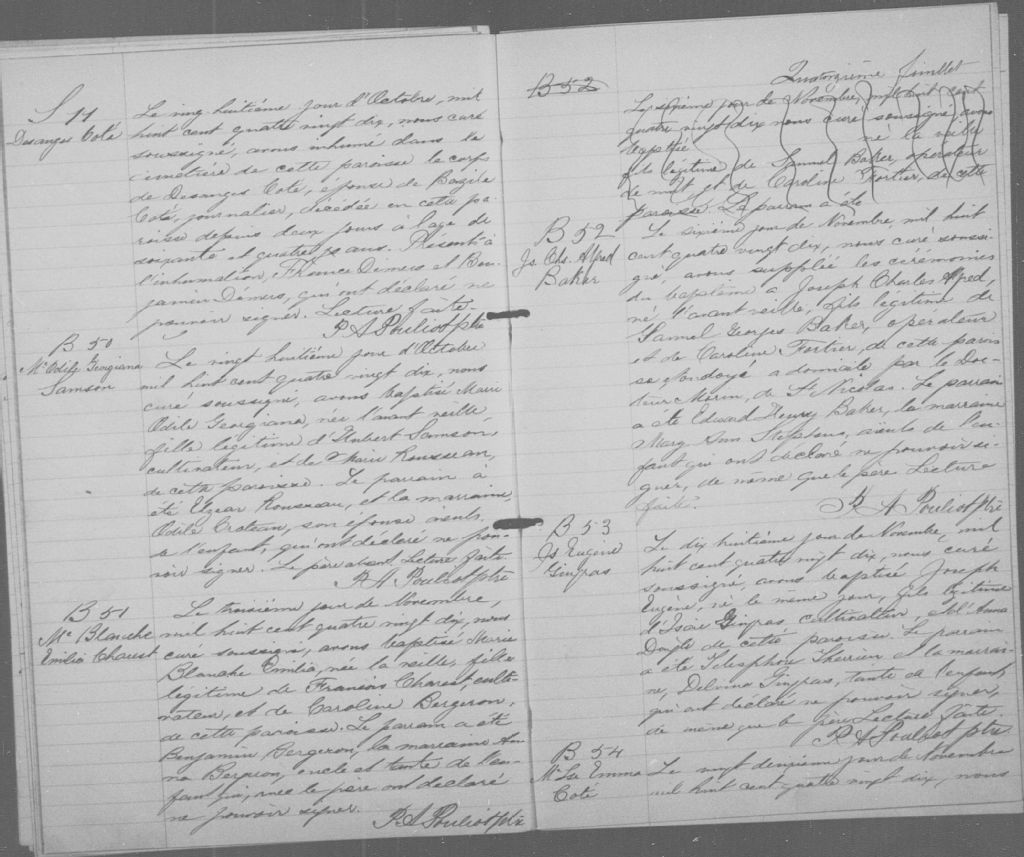 S 11
Desanges Coté
Le ving huitième jour d'Octobre, mil
huit cent quatre vingt dix, nous curé
soussigné, avons inhumé dans le
cimetière de cette paroisse le corps
de Desanges Coté, épouse de Bazile
Coté, journalier, décédée en cette pa-
roisse depuis deux jours à l'age de
soixante et quatre ans. Présents à
l'inhumation, Demers et Ben-
jamin Demers, qui ont déclaré ne
pouvoir signer. Lecture faite.
P. A. Pouliot ptre
B 50
Me Odile Georgiana
Samson
Le vingt huitième jour d'Octobre
mil huit cent quatre vingt dix, nous
curé soussigné, avons baptisé Marie
Odile Georgiana, née l'avant veille,
fille légitime d'Hubert Samson,
cultivateur, et de Marie Rousseau,
de cette paroisse. Le parrain a
été Elzear Rousseau, et la marraine,
Odile Croteau, son épouse aieuls
de l'enfant, qui ont déclaré ne pou-
voir signer. Le père absent. Lecture faite.
P. A. Pouliot ptre
B 51
Me Blanche
Emilia Charest
Le troisième jour de Novembre,
mil huit cent quatre vingt dix, nous
curé soussigné, avons baptisé Marie
Blanche Emilia, née la veille, fille
légitime de François Charest, culti-
vateur, et de Caroline Bergeron,
de cette paroisse. Le parrain a été
Benjamin Bergeron, la marraine An-
na Bergeron, oncle et tante de l'en-
fant qui, avec le père ont déclaré
ne pouvoir signer.
P. A. Pouliot ptre
Quatorzième feuillet
B 52
Le sixième jour de Novembre, mil huit cent
quatre vingt dix nous curé soussigné avons
baptisé né la veille
fils légitime de Samuel Baker, operateur
de et de Caroline Fortier, de cette
paroisse. Le parrain a été
B 52
Js. Chs. Alfred
Baker
Le sixième jour de Novembre, mil huit
cent quatre vingt dix, nous curé soussi-
gné, avons suppléé les cérémonies
du baptême à Joseph Charles Alfred,
né l'avant veille, fils légitime de
Samuel Georges Baker, opérateur
et de Caroline Fortier, de cette parois
se ondoyé a domicile par le Doc-
teur Morin, de St Nicolas. Le parrain
a été Edward Henry Baker, la marraine
Mary Ann Stephens, aieuls de l'en-
fant qui ont déclaré ne pouvoir si-
gner, de même que le père. Lecture
faite.
P. A. Pouliot ptre
B 53
Js Eugène
Gingras
Le dix huitième jour de Novembre, mil
huit cent quatre vingt dix, nous curé
soussigné, avons baptisé Joseph
Eugène, né le même jour, fils légitime
d'Isaie Gingras, cultivateur, et d'Anna
de cette paroisse. Le parrain
a été Télesphore Therrien et la marrai-
ne, Delvina Gingras, tante de l'enfant,
qui ont déclaré ne pouvoir signer,
de même que le père. Lecture faite
P. A. Pouliot ptre
B 54
Me Emma
Coté
Le vingt deuxième jour de Novembre
mil huit cent quatre vingt dix, nous